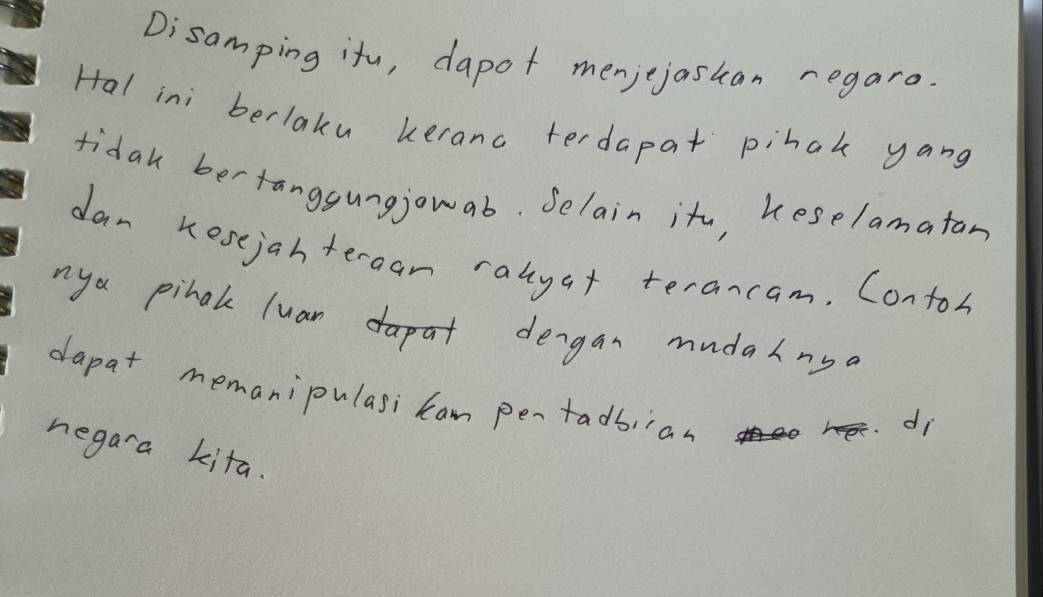 Disamping itu, dapat menjejaskan negara.
Hal ini berlaku kerana terdapat pihak yang
tidak bertanggungjawab. Selain itu, keselamatan
dan kesejahteraan rakyat terancam. Contoh
nya pihak luar dapat dengan mudahnya
dapat memanipulasikan pentadbiran di
negara kita.